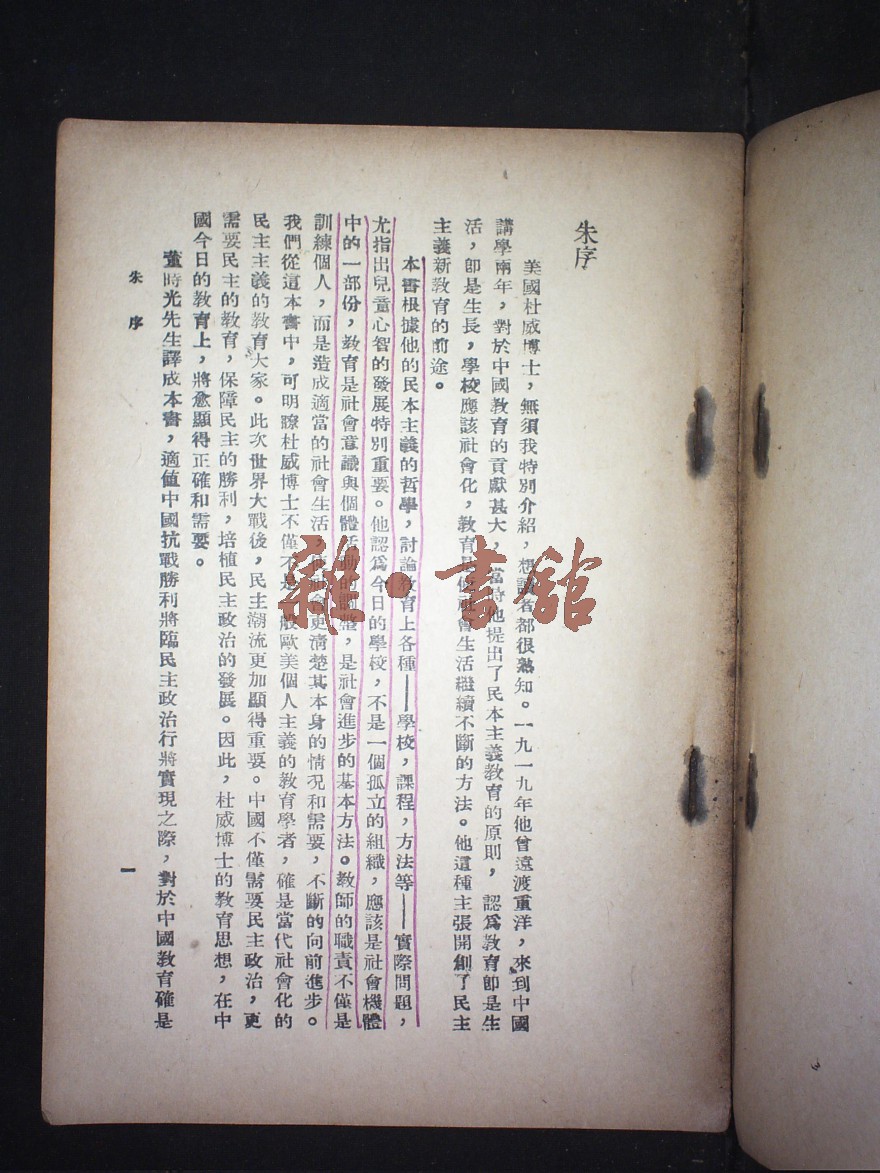 朱序
美國杜威博士，無須我特別介紹，想讀者都很熟知。一九一九年他曾遠渡重洋，來到中國
講學兩年，對於中國教育的貢獻甚大，當時他提出了民本主義教育的原則，認爲教育卽是生
活，卽是生長，學校應該社會化，教育是使社會生活繼續不斷的方法。他這種主張開創了民主
主義新教育的前途。
本書根據他的民本主義的哲學，討論教育上各種——學校，課程，方法等——實際問題，
尤指出兒童心智的發展特別重要。他認爲今日的學校，不是一個孤立的組織，應該是社會機體
中的一部份，教育是社會意識與個體活動的調整，是社會進步的基本方法。教師的職責不僅是
訓練個人，而是造成適當的社會生活，使社會更清楚其本身的情況和需要，不斷的向前進步。
我們從這本書中，可明瞭杜威博士不僅不是一般歐美個人主義的教育學者，確是當代社會化的
民主主義的教育大家。此次世界大戰後，民主潮流更加顯得重要。中國不僅需要民主政治，更
需要民主的教育，保障民主的勝利，培植民主政治的發展。因此，杜威博士的教育思想，在中
國今日的教育上，將愈顯得正確和需要。
董時光先生譯成本書，適値中國抗戰勝利將臨民主政治行將實現之際，對於中國教育確是
朱序
一
雜·書館